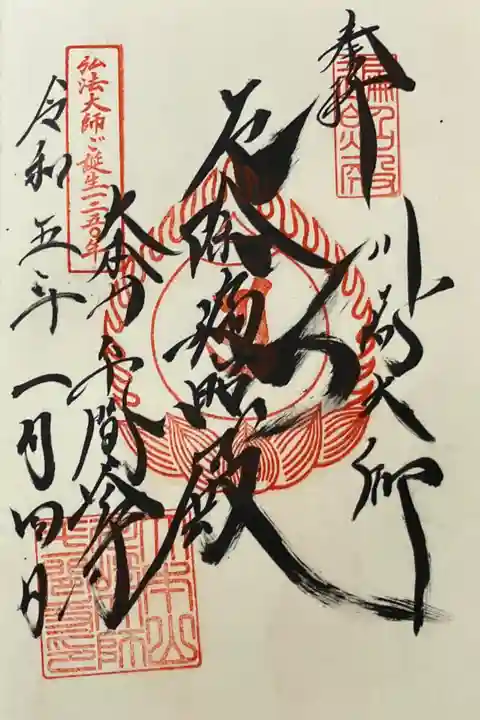 奉拝
川崎大師
厄除遍照殿
大本山平間寺
弘法大師ご誕生一二五〇年
令和五年一月四日